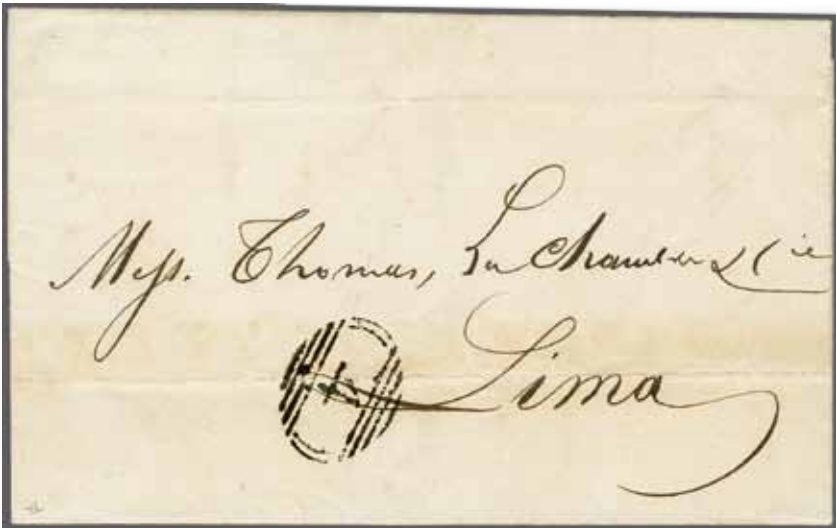 Mess. Thomas, La Chambre & Cie
Lima